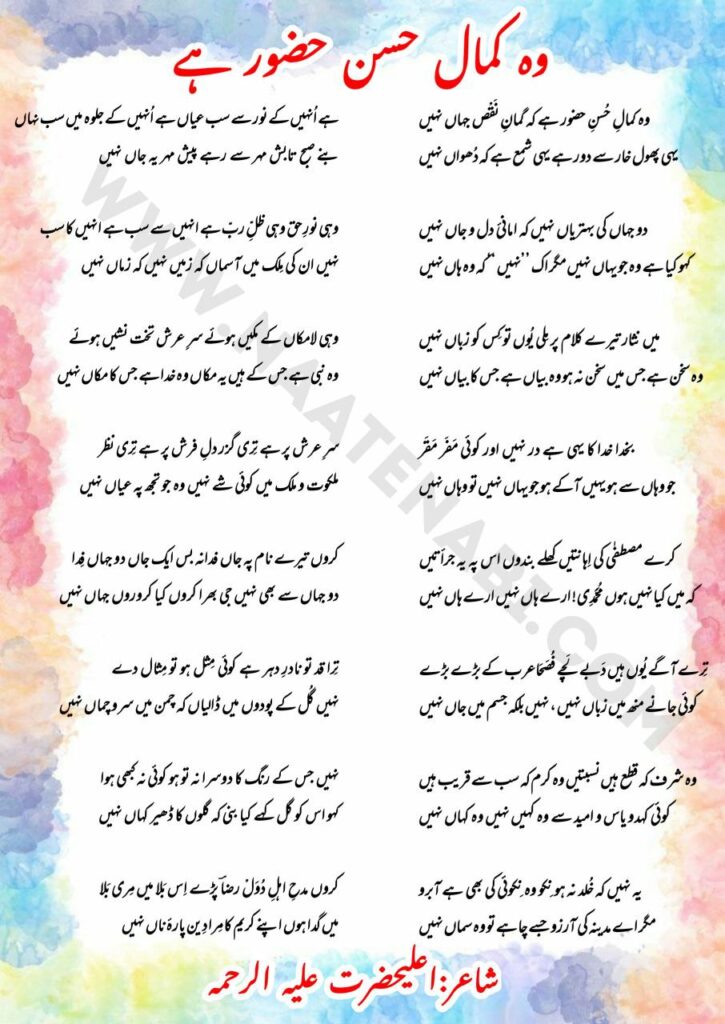 وہ کمال حسن حضور ہے
وہ کمالِ حُسنِ حضور ہے کہ گمانِ نَقْص جہاں نہیں
یہی پھول خار سے دور ہے یہی شمع ہے کہ دُھواں نہیں
دو جہاں کی بہتریاں نہیں کہ امانیٔ دل و جاں نہیں
کہو کیا ہے وہ جو یہاں نہیں مگر اک ’’نہیں‘‘ کہ وہ ہاں نہیں
میں نثار تیرے کلام پر ملی یُوں تو کِس کو زباں نہیں
وہ سخن ہے جس میں سخن نہ ہو وہ بیاں ہے جس کا بیاں نہیں
بخدا خدا کا یہی ہے در نہیں اور کوئی مَفَر مَقَر
جو وہاں سے ہو یہیں آ کے ہو جو یہاں نہیں تو وہاں نہیں
کرے مصطفٰی کی اِہانتیں کھلے بندوں اس پہ یہ جرأتیں
کہ میں کیا نہیں ہوں مُحَمَّدِی! ارے ہاں نہیں ارے ہاں نہیں
تِرے آگے یُوں ہیں دَبے لَچے فُصَحَا عرب کے بڑے بڑے
کوئی جانے منھ میں زباں نہیں، نہیں بلکہ جسم میں جاں نہیں
وہ شرف کہ قطع ہیں نسبتیں وہ کرم کہ سب سے قریب ہیں
کوئی کہدو یاس و امید سے وہ کہیں نہیں وہ کہاں نہیں
یہ نہیں کہ خُلد نہ ہو نِکو وہ نِکوئی کی بھی ہے آبرو
مگر اے مدینہ کی آرزو جسے چاہے تو وہ سماں نہیں
ہے اُنہیں کے نور سے سب عیاں ہے اُنہیں کے جلوہ میں سب نہاں
بنے صبح تابش مہر سے رہے پیش مہر یہ جاں نہیں
وہی نورِ حق وہی ظلِّ ربّ ہے انہیں سے سب ہے انہیں کا سب
نہیں ان کی مِلک میں آسماں کہ زمیں نہیں کہ زماں نہیں
وہی لامکاں کے مکیں ہوئے سرِ عرش تخت نشیں ہوئے
وہ نبی ہے جس کے ہیں یہ مکاں وہ خدا ہے جس کا مکاں نہیں
سرِ عرش پر ہے تِری گزر دلِ فرش پر ہے تِری نظر
ملکوت و ملک میں کوئی شے نہیں وہ جو تجھ پہ عیاں نہیں
کروں تیرے نام پہ جاں فدا نہ بس ایک جاں دو جہاں فِدا
دو جہاں سے بھی نہیں جی بھرا کروں کیا کروروں جہاں نہیں
تِرا قد تو نادرِ دہر ہے کوئی مِثل ہو تو مِثال دے
نہیں گُل کے پودوں میں ڈالیاں کہ چمن میں سرو چماں نہیں
نہیں جس کے رنگ کا دوسرا نہ تو ہو کوئی نہ کبھی ہوا
کہو اس کو گل کہے کیا بنی کہ گلوں کا ڈھیر کہاں نہیں
کروں مدح اہلِ دُوَلْ رضاؔ پڑے اِس بَلا میں مِری بَلا
میں گدا ہوں اپنے کریم کا مِرا دِین پارۂ ناں نہیں
شاعر:اعلیحضرت علیہ الرحمہ
WWW.NAATENABI.COM